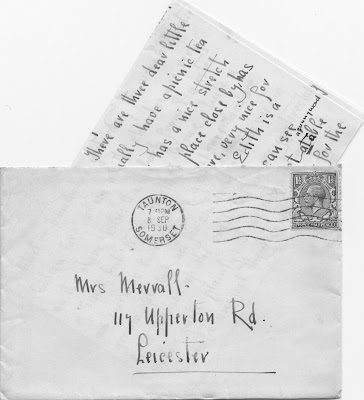 There are three dear little
nally have a picnic tea
has a nice stretch
place close by has
re, very nice for
Edith is a
can see
at a table
for the
TAUNTON
8 SEP
1930
SOMERSET
1½ 1½
Mrs Merrall-
117 Upperton Rd.
Leicester